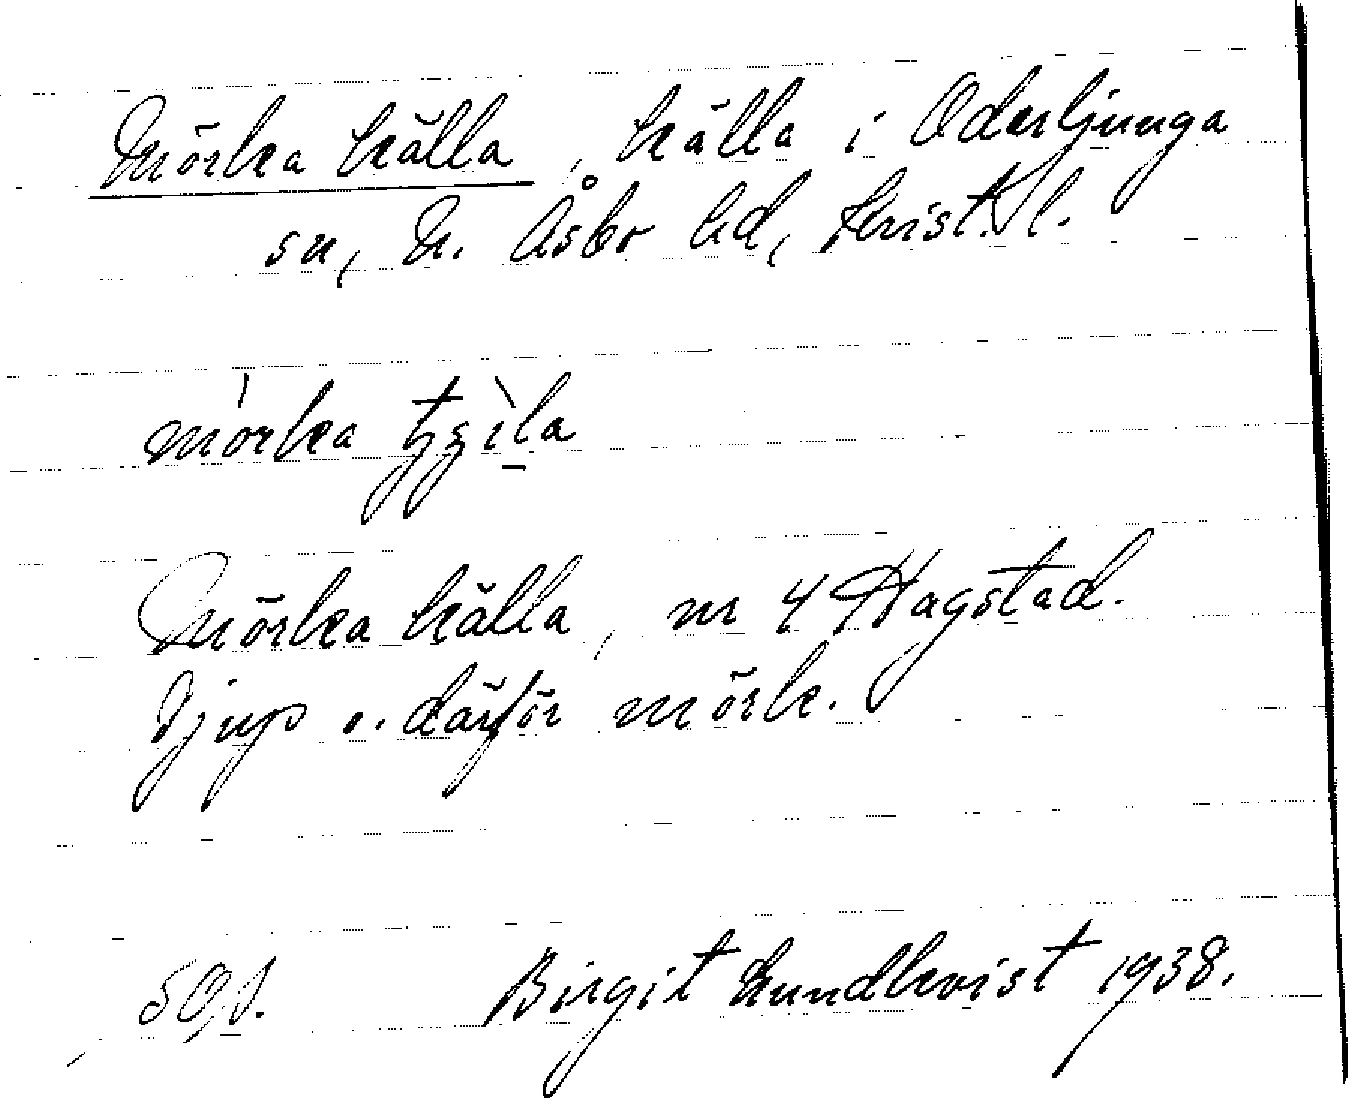 Mörka källa, källa i Oderljunga
sn, N. Åsbo hd, Krist. l.
mòrka
Mörka källa, nr 4 Hagstad.
Djup o. därför mörk.
Birgit Lundkvist 1938.